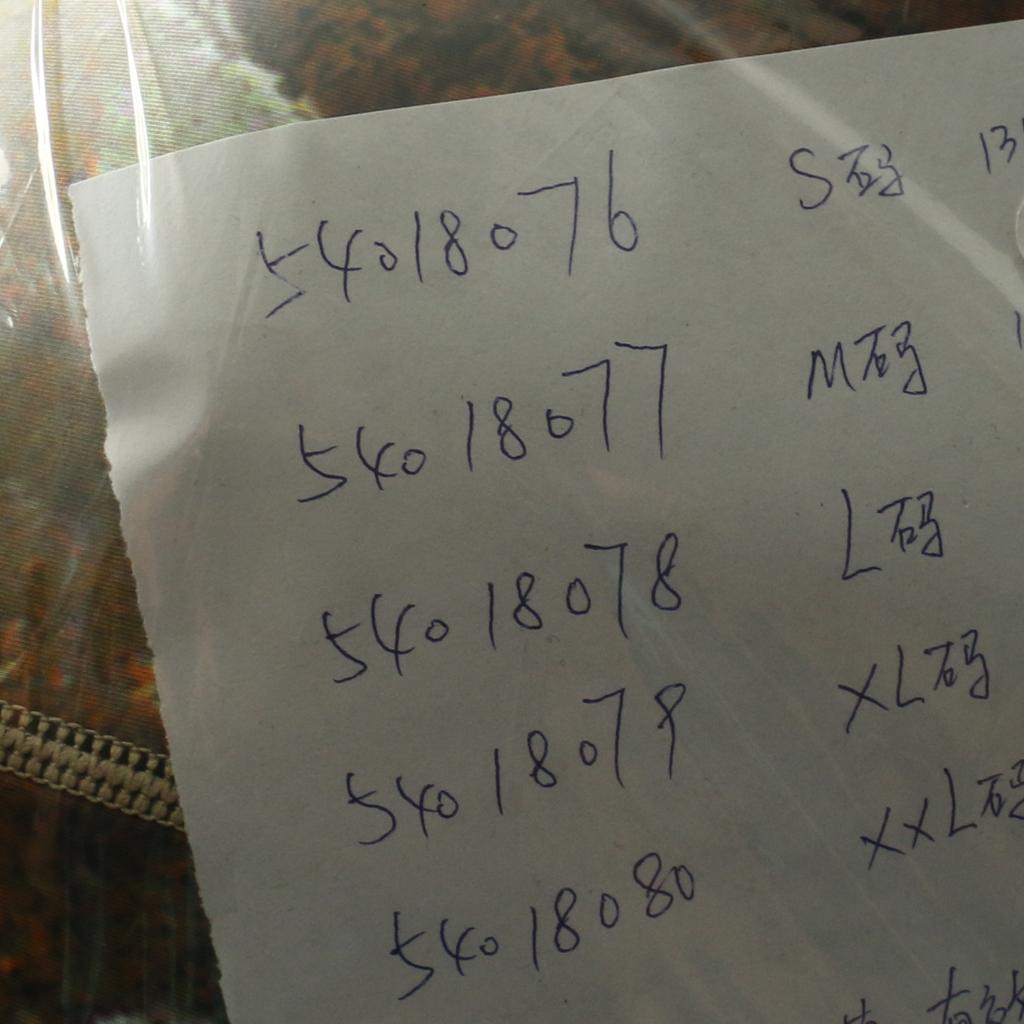 54018076 S码 13
54018077 M码 1
54018078 L码
54018079 XL码
54018080 XXL码